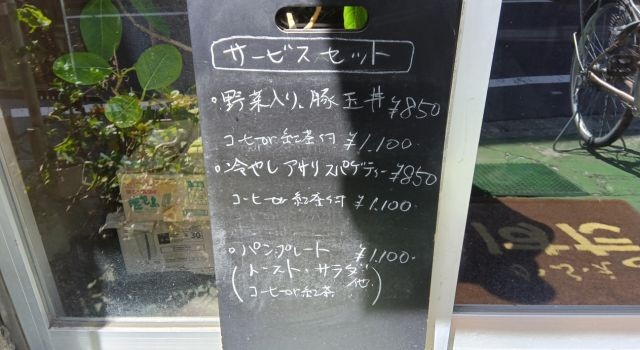 サービスセット
○野菜入り、豚玉丼 ¥850
コーヒーor紅茶付 ¥1.100
○冷やしアサリスパゲティー ¥850
コーヒーor紅茶付 ¥1.100
○パンプレート ¥1.100
(トースト・サラダ他
コーヒーor紅茶)